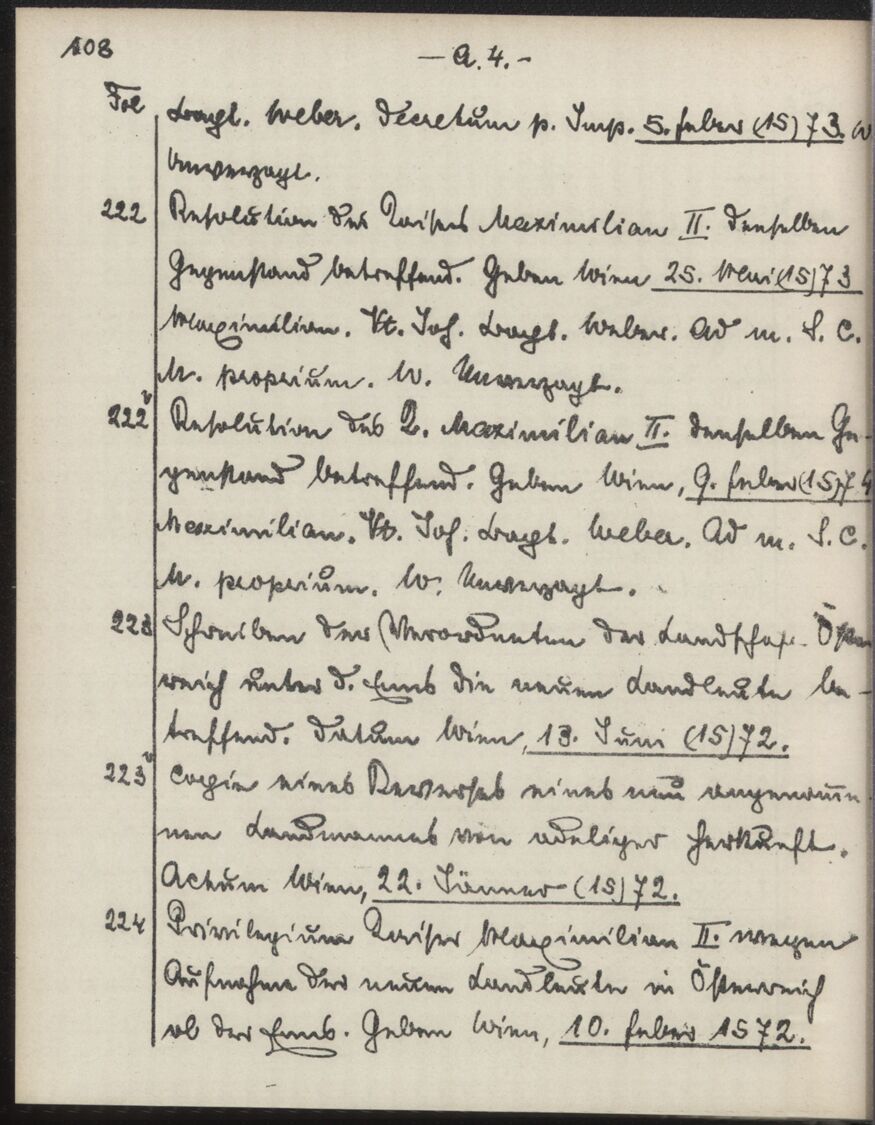 108
— A. 4. —
Fol
Bapt. Weber. Decretum p. Imp. 5. Feber (15)73. W
Unverzagt.
222 Resolution des Kaisers Maximilian II. denselben
Gegenstand betreffend. Geben Wien 25. Mai (15)73
Maximilian. Vt. Joh. Bapt. Weber. Ad m. S. C.
M. proprium. W. Unverzagt.
222v Resolution des K. Maximilian II. denselben Ge-
genstand betreffend. Geben Wien, 9. Feber (15)74
Maximilian. Vt. Joh. Bapt. Weber. Ad m. S. C.
M. proprium. W. Unverzagt.
223 Schreiben der Verordneten der Landschaft Öster
reich unter d. Enns die neuen Landleute be-
treffend. Datum Wien, 13. Juni (15)72.
223v Copie eines Reverses eines neu angenom̅e-
nen Landmannes von adeliger Herkunft.
Actum Wien, 22. Jänner (15)72.
224 Privilegium Kaiser Maximilian II. wegen
Aufnahme der neuen Landleute in Österreich
ob der Enns. Geben Wien, 10. Feber 1572.